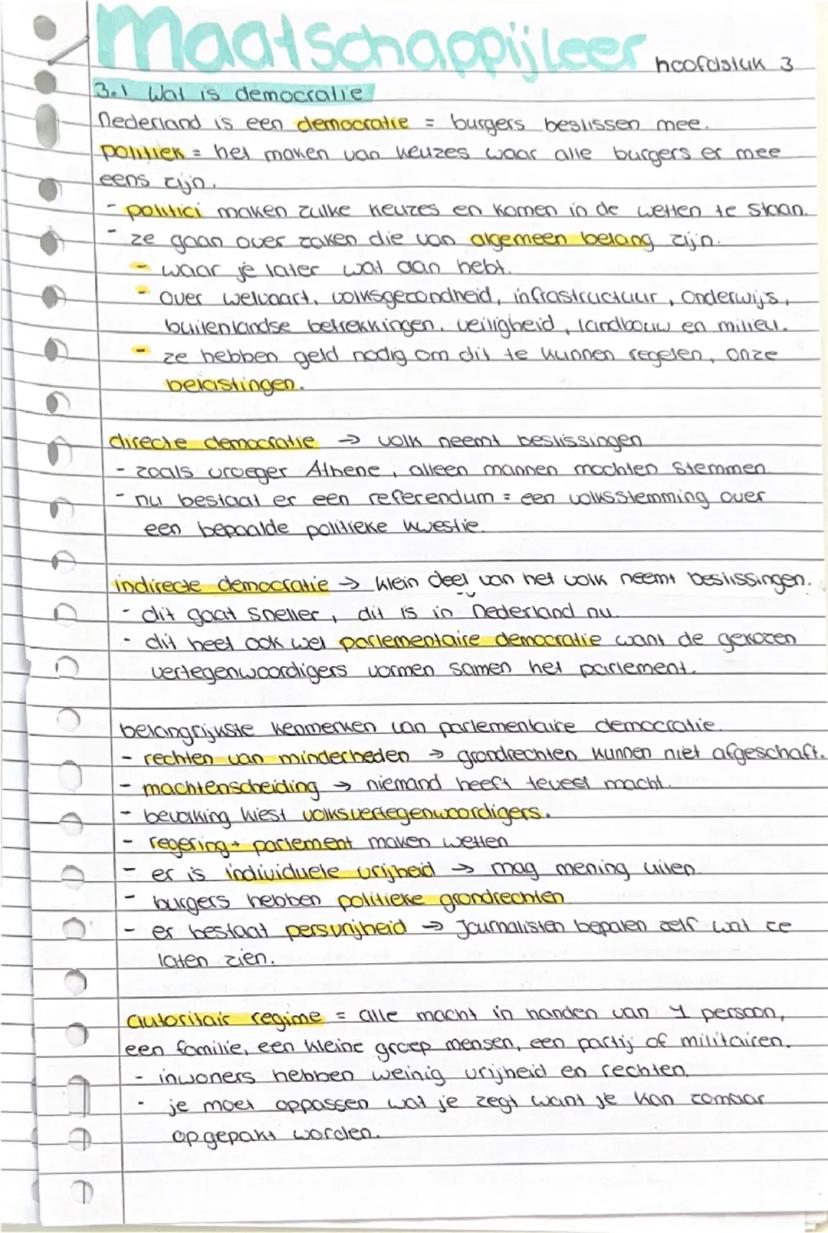 Maatschappijleer hoofdstuk 3
3.1 Wat is democratie
Nederland is een democratie = burgers beslissen mee.
politiek = het maken van keuzes waar alle burgers er mee
eens zijn.
- politici maken zulke keuzes en komen in de wetten te staan.
- ze gaan over zaken die van algemeen belang zijn.
- waar je later wat aan hebt.
- over welvaart, volksgezondheid, infrastructuur, onderwijs,
buitenlandse betrekkingen, veiligheid, landbouw en milieu.
- ze hebben geld nodig om dit te kunnen regelen, onze
belastingen.
directe democratie → volk neemt beslissingen
- zoals vroeger Athene, alleen mannen mochten stemmen
- nu bestaat er een referendum = een volksstemming over
een bepaalde politieke kwestie.
indirecte democratie → klein deel van het volk neemt beslissingen.
- dit gaat sneller, dit is in Nederland nu.
- dit heet ook wel parlementaire democratie want de gekozen
vertegenwoordigers vormen samen het parlement.
belangrijkste kenmerken van parlementaire democratie.
- rechten van minderheden → grondrechten kunnen niet afgeschaft.
- machtenscheiding → niemand heeft teveel macht.
- bevolking kiest volksvertegenwoordigers.
- regering + parlement maken wetten
- er is individuele vrijheid → mag mening uiten.
- burgers hebben politieke grondrechten
- er bestaat persvrijheid → Journalisten bepalen zelf wat ze
laten zien.
autoritair regime = alle macht in handen van 1 persoon,
een familie, een kleine groep mensen, een partij of militairen.
- inwoners hebben weinig vrijheid en rechten.
- je moet oppassen wat je zegt want je kan zomaar
opgepakt worden.